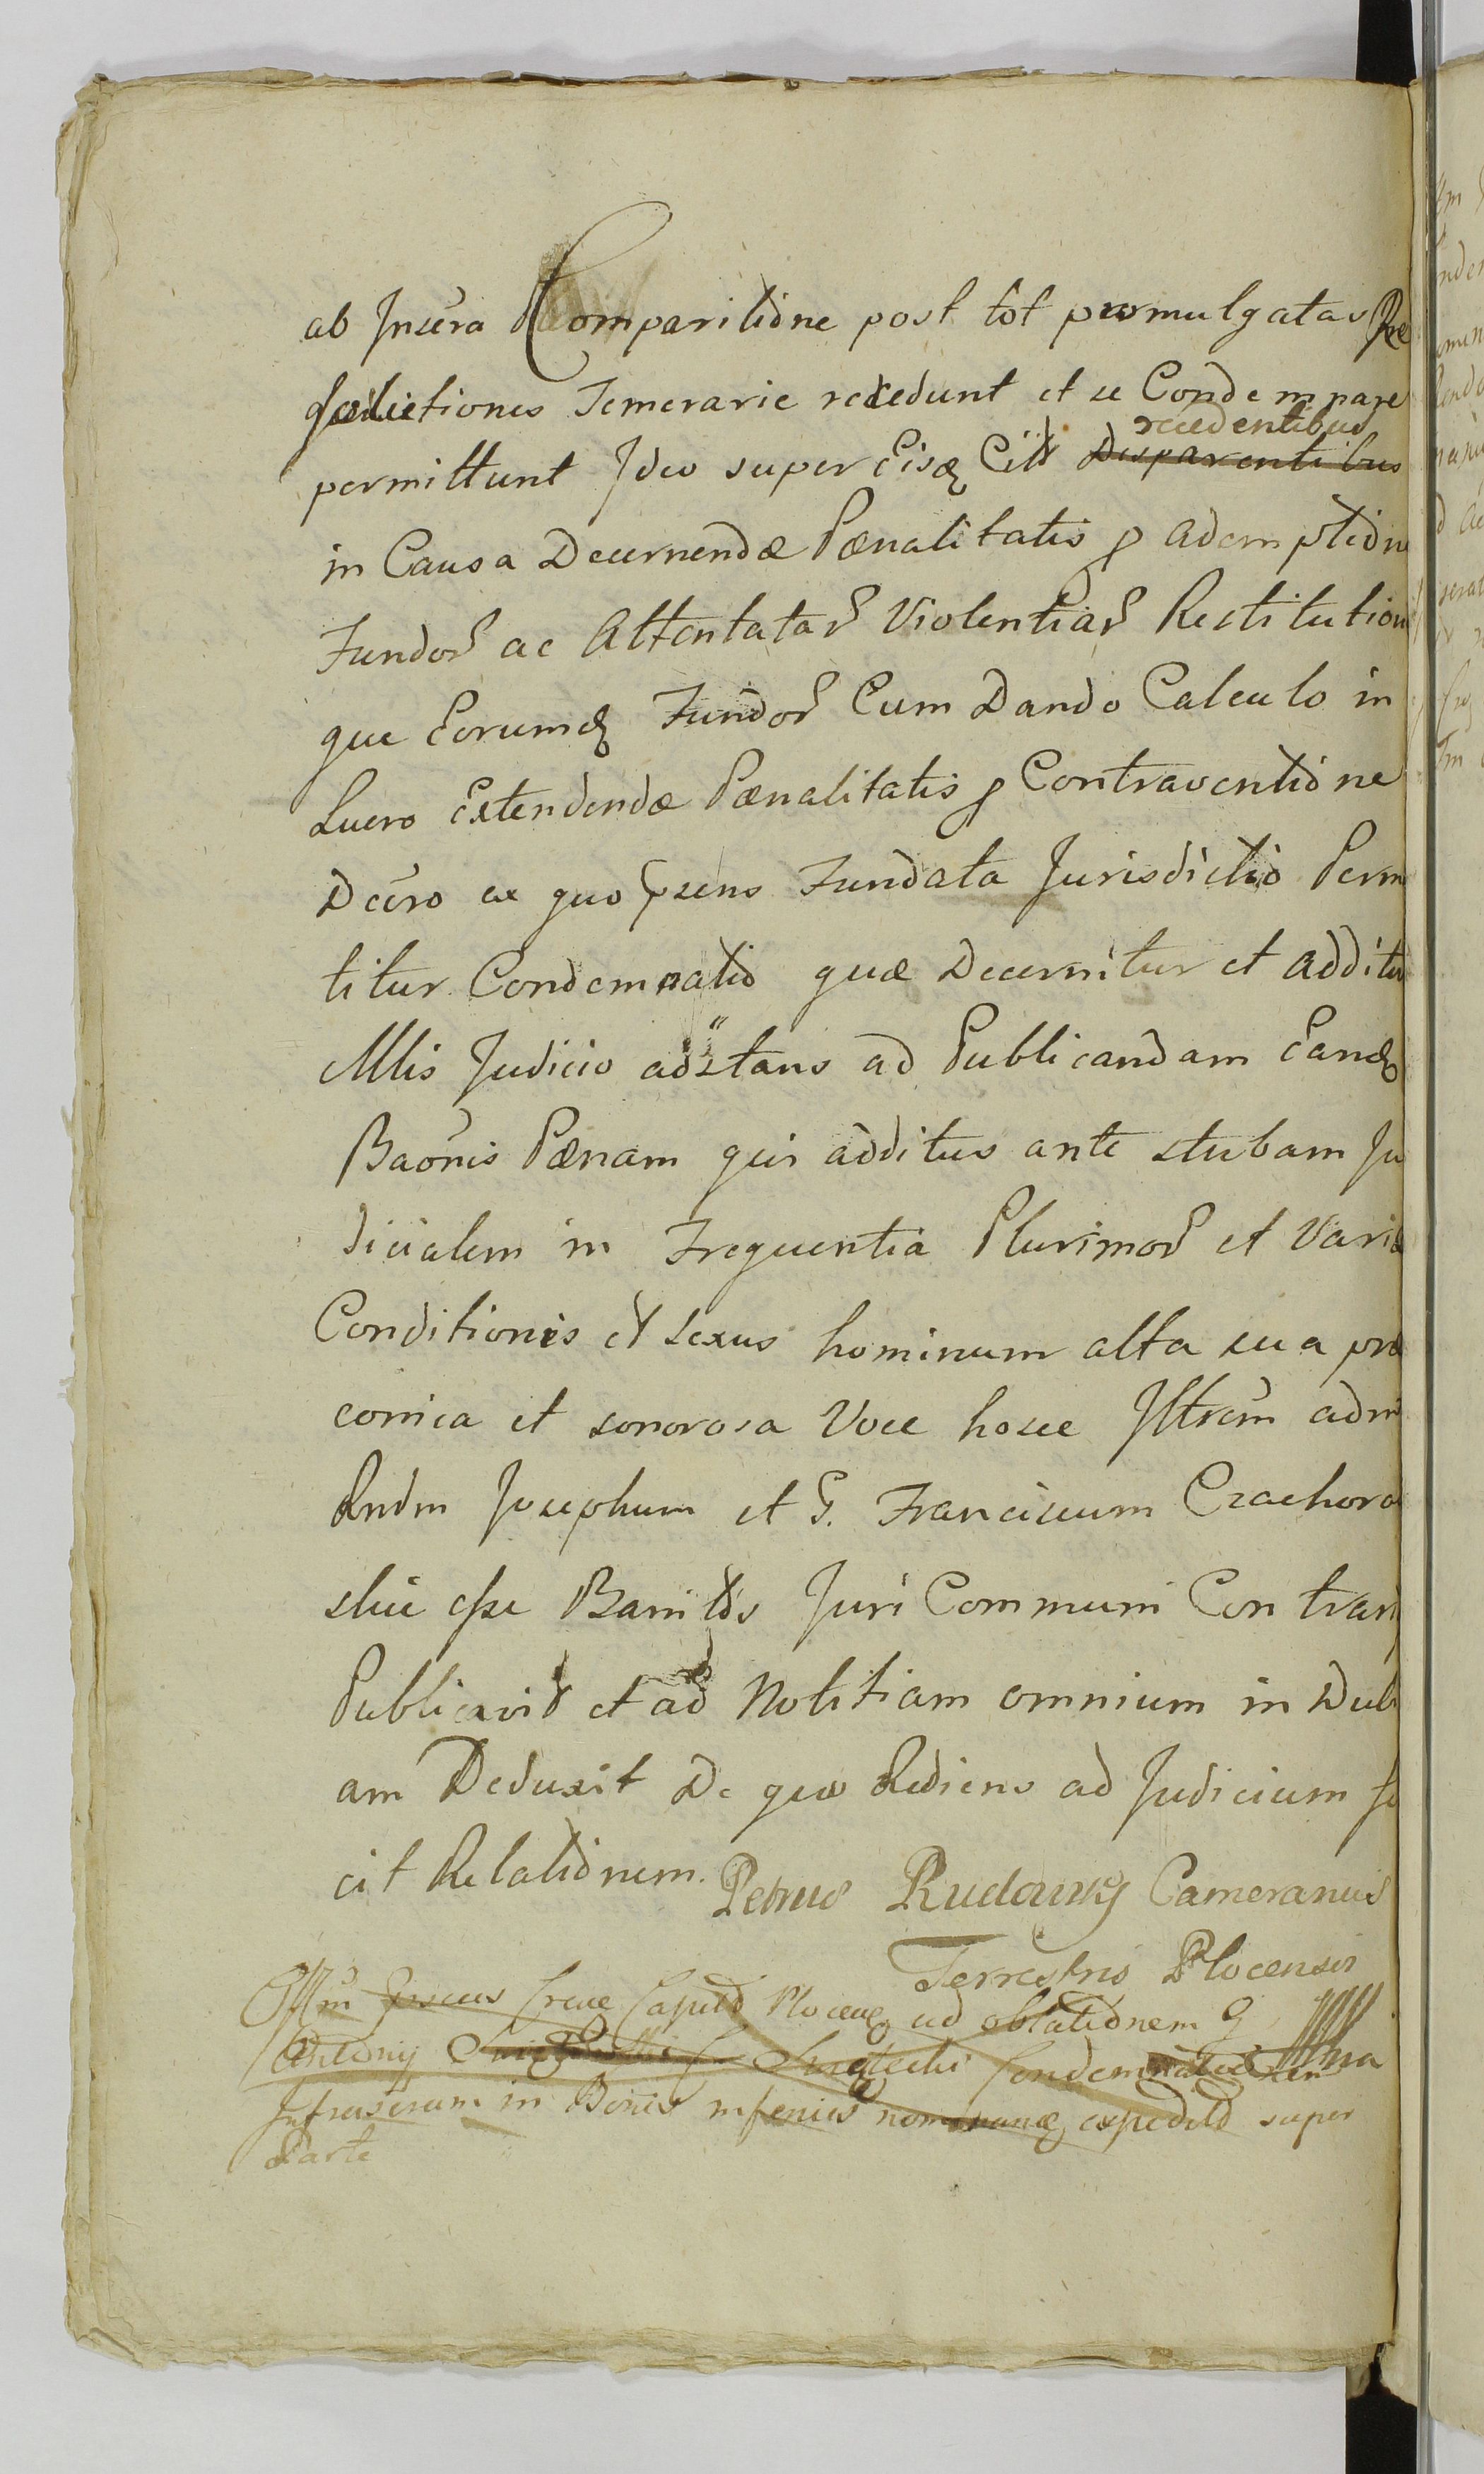 ab Insera Comparitione post tot promulgatas Re
jectiones Temerarie recedunt et se Condempnare
permittunt Ideo super Eisq Citt recedentibus Disparentibus
in Causa Decernendæ Pœnalitatis p Ademptione
Fundor ac Attentatar Violentiar Restitution
que Eorumq Fundor Cum Dando Calculo in
Lucro Extendendæ Pœnalitatis p Contraventione
Decro ex quo psens Fundata Jurisdictio Perm
titur Condemnatio quæ Decernitur et additur
Mlis Judicio adstans ad Publicandam Eandq
Baonis Pœnam qui additus ante stubam Ju
dicialem in Frequentia Plurimor et Varia
Conditionis et sexus hominum alta sua præ
conica et sonorosa Voce hosce Illtrem adm
Rndm Josephum et G. Franciscum Czachoro
skie esse Banitos Juri Communi Contrari
Publicavit et ad Notitiam omnium in Dubi
am Deduxit De quo Rediens ad Judicium fe
cit Relationem.
Petrus Rudowsky Cameranius
Terrestris Plocensis
Offm Crciue Capld Plocens ad oblationem G
Antonij
in Bonis expedit super
Parte